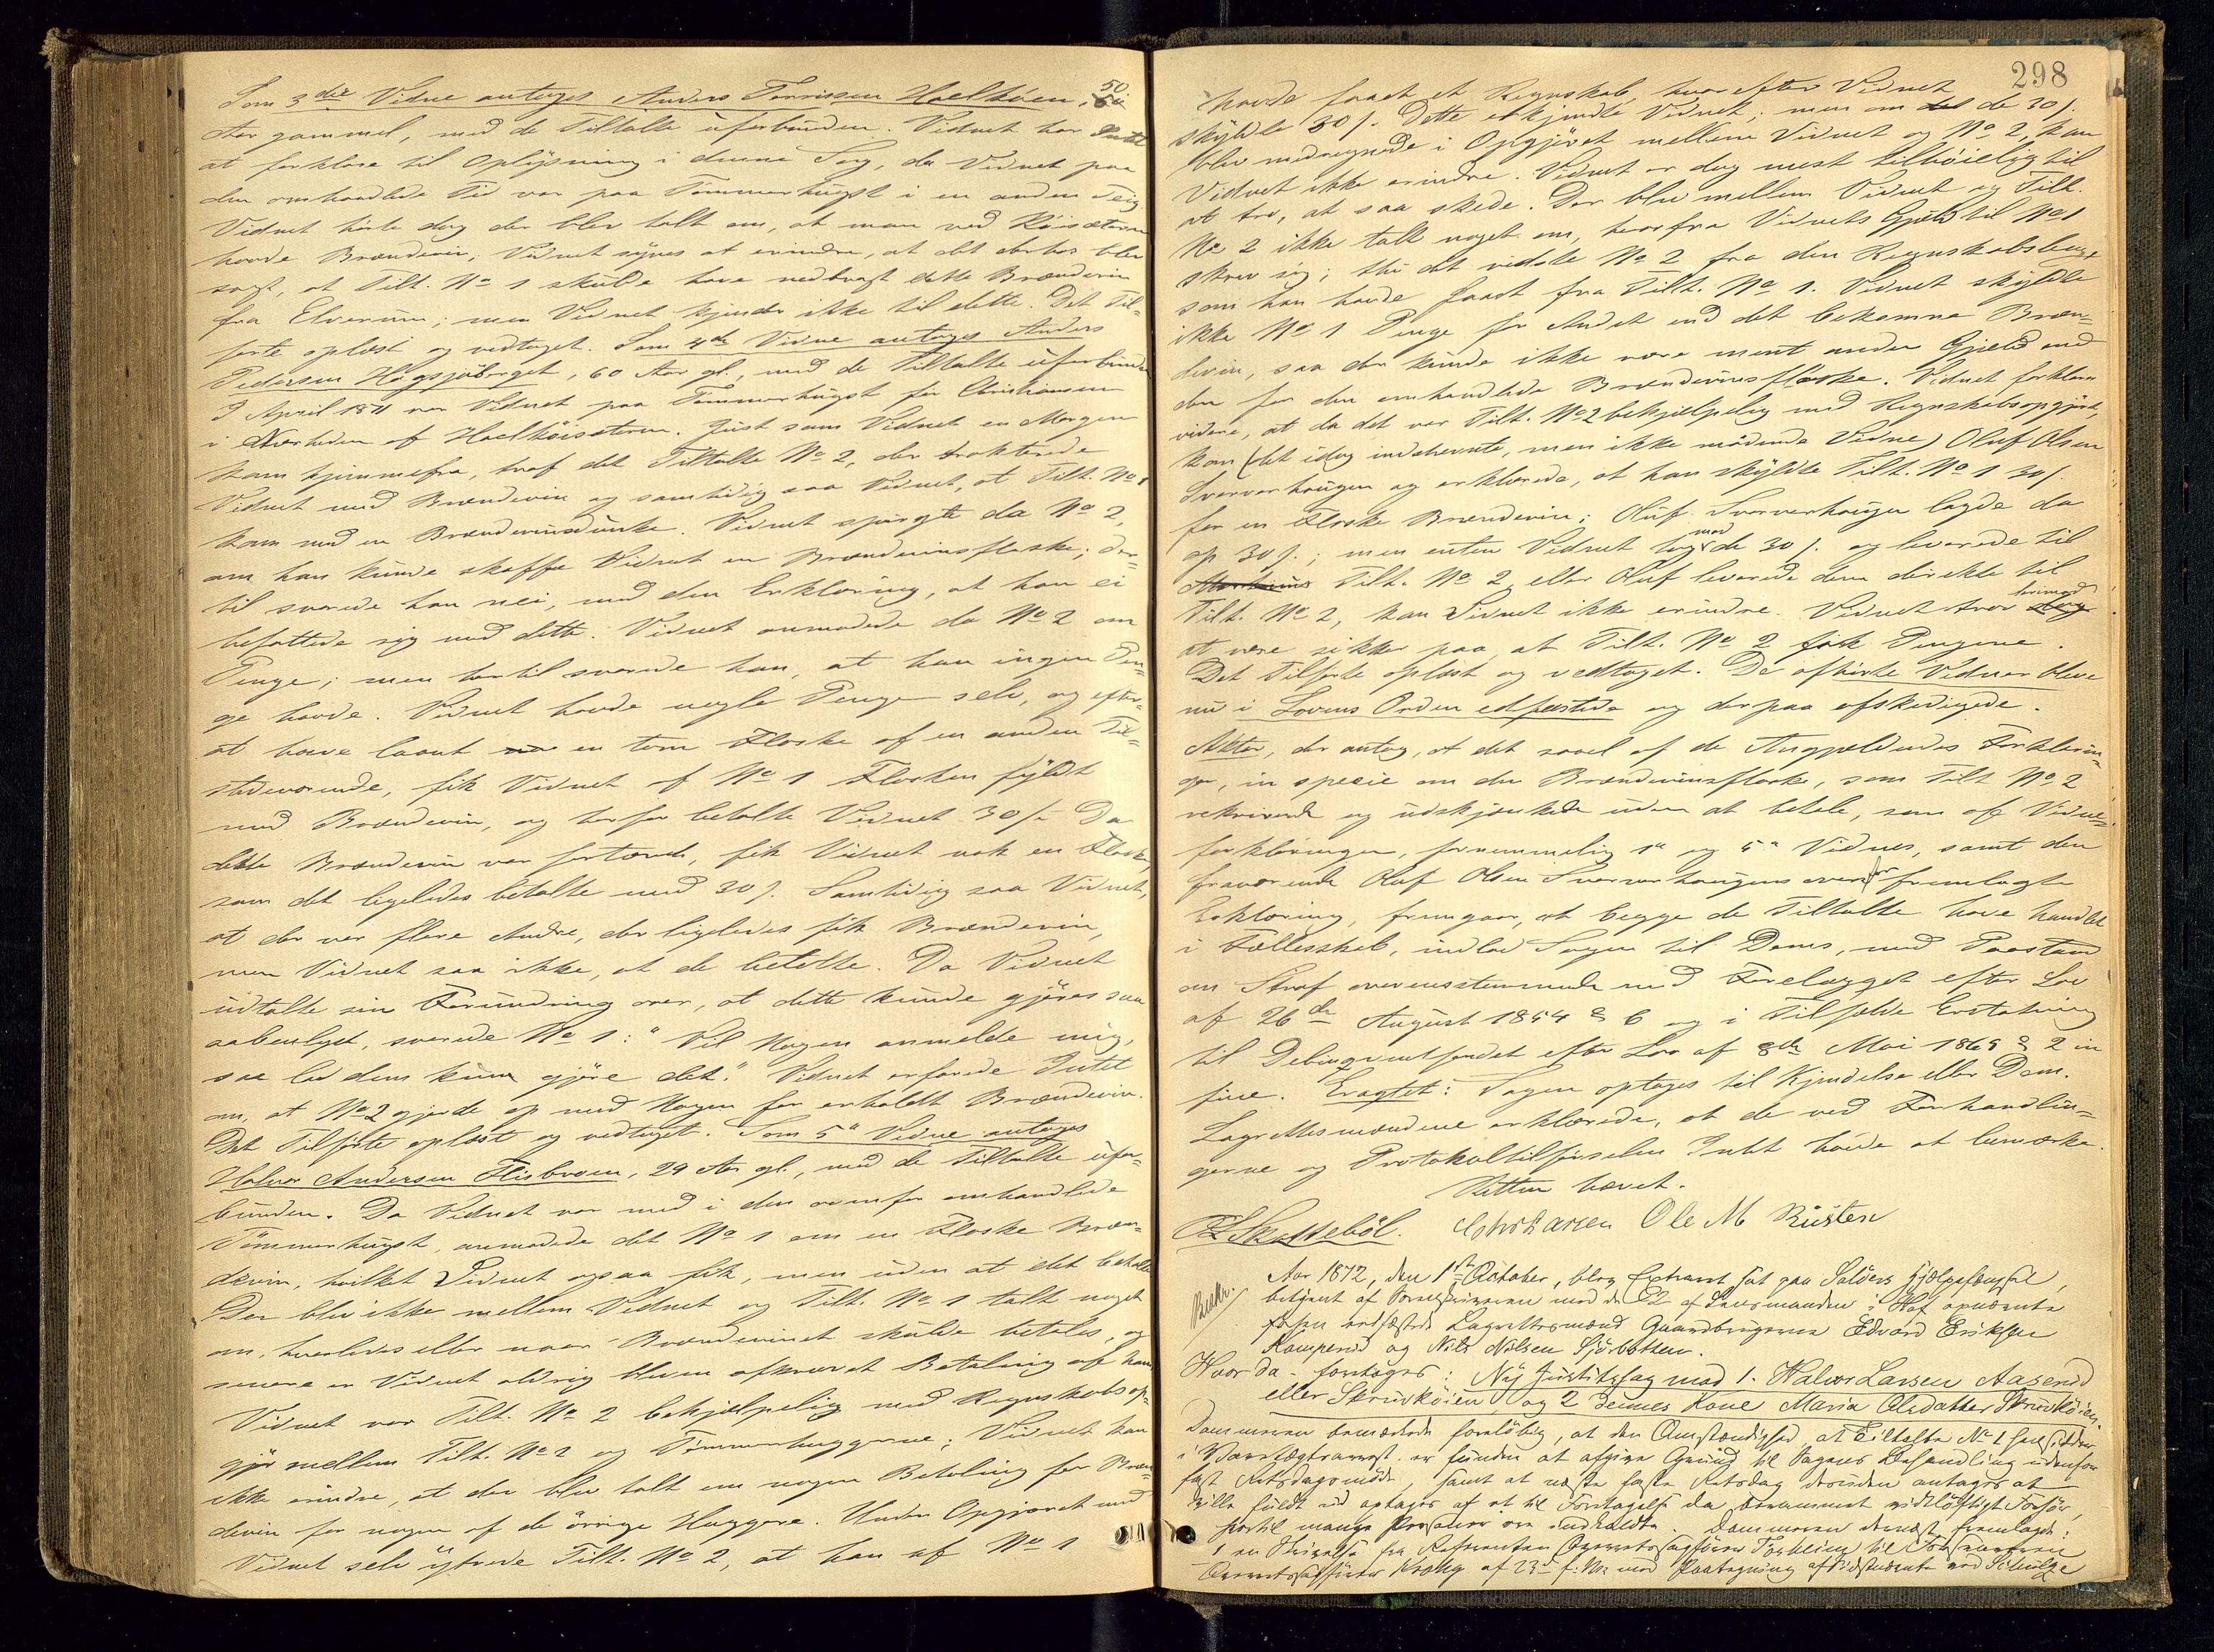 Som 3die Vidne antoges Anders Torrissen Haelhöen, 50
Aar gammel, med de Tiltalte uforbunden. Vidnet har Intet
at forklare til Oplysning i denne Sag, da Vidnet paa
den omhandlede Tid var paa Tømmerhugst i en anden Teig.
Vidnet hørte dog der blev talt om, at man ved
havde Brændevin; Vidnet synes at erindre, at det derhos blev
sagt, at Tilt. No 1 skulde have nedbragt dette Brændevin
fra Elverum; men Vidnet kjender ikke til dette. Det Til-
førte oplæst og vedtaget. Som 4de Vidne antoges Anders
Pedersen Høgsjøberget, 60 Aar gl., med de Tiltalte uforbunden
I April 1871 var Vidnet paa Tømmerhugst for Christiansen
i Nærheden af Haelhöisæteren. Just som Vidnet en Morgen
kom hjemmefra, traf det Tiltalte No 2, der trakterede
Vidnet med Brændevin og samtidig saa Vidnet, at Tilt. No 1
kom med en Brændevinsdunke. Vidnet spurgte da No 2,
om han kunde skaffe Vidnet en Brændevinsflaske; der-
til svarede han nei, med den Erklæring, at han ei
befattede sig med dette. Vidnet anmodede da No 2 om
Penge; men hertil svarede han, at han ingen Pen-
ge havde. Vidnet havde nogle Penge selv, og efter
at have laant en tom Flaske af en anden Til-
stedeværende, fik Vidnet af No 1 Flasken fyldt
med Brændevin, og herfor betalte Vidnet 30 s. Da
dette Brændevin var fortæret, fik Vidnet nok en Flaske,
som det ligeledes betalte med 30 s. Samtidig saa Vidnet,
at der var flere Andre, der ligeledes fik Brændevin,
men Vidnet saa ikke, at de betalte. Da Vidnet
udtalte sin Forundring over, at dette kunde gjøres saa
aabenlyst, svarede No 1: "Vil Nogen anmelde mig,
saa lad dem kun gjøre det." Vidnet erfarede Intet
om, at No 2 gjorde op med Nogen for erholdt Brændevin.
Det Tilførte oplæst og vedtaget. Som 5te Vidne antoges
Halvor Andersen Flisbroen, 29 Aar gl., med de Tiltalte ufor-
bunden. Da Vidnet var med i den ovenfor omhandlede
Tømmerhugst, anmodede det No 1 om en Flaske Bræn-
devin, hvilket Vidnet ogsaa fik, men uden at det betalte
Der blev ikke mellem Vidnet og Tilt. No 1 talt noget
om, hvorledes eller naar Brændevinet skulde betales, og
senere er Vidnet aldrig bleven afkrævet Betaling af ham
Vidnet var Tilt. No 2 behjælpelig med Regnskabsop-
gjør mellem Tilt. No 2 og Tømmerhuggerne; Vidnet kan
ikke erindre, at der blev talt om nogen Betaling for Bræn-
devin for nogen af de øvrige Huggere. Under Opgjøret med
Vidnet selv ytrede Tilt. No 2, at han af No 1
298
havde faaet et Regnskab hvorefter Vidnet
skyldte 30 s. Dette erkjendte Vidnet; men om de 30 s.
blev medregnede i Opgjøret mellem Vidnet og No 2, kan
Vidnet ikke erindre. Vidnet er dog mest tilbøielig til
at tro, at saa skede. Der blev mellem Vidnet og Tilt.
No 2 ikke talt noget om, hvorfra Vidnets Gjæld til No 1
skrev sig; thi det vidste No 2 fra den Regnskabsbog
som han havde faaet fra Tilt. No 1. Vidnet skyldte
ikke No 1 Penge for Andet end det bekomne Bræn-
devin, saa der kunde ikke være ment anden Gjæld end
den for den omhandlede Brændevinsflaske. Vidnet forklarer
videre, at da det var Tilt. No 2 behjælpelig med Regnskabsopgjøret,
kom (det idag indstevnte, men ikke mødende Vidne) Oluf Olsen
Sværverhaugen og erklærede, at han skyldte Tilt. No 1 30 s.
for en Flaske Brændevin; Oluf Sværverhaugen lagde da
op 30 s.; men enten Vidnet tog mod de 30 s. og leverede til
Tilt. No 2, eller Oluf leverede dem direkte til
Tilt. No 2, kan Vidnet ikke erindre. Vidnet tror derimod
at være sikker paa at Tilt. No 2 fik Pengene.
Det Tilførte oplæst og vedtaget. De afhørte Vidner bleve
nu i Lovens Orden edfæstede og derpaa afskedigede.
Aktor, der antog, at det saavel af de Angjældendes Forklarin-
ger, in specie om den Brændevinsflaske, som Tilt No 2
rekvirerede og udskjænkede uden at betale, som af Vidne-
forklaringer, fornemmelig 1ste og 5te Vidnes, samt den
fraværende Oluf Olsen Sværverhaugens ovenfor fremlagte
Erklæring, fremgaar, at begge de Tiltalte have handlet
i Fællesskab, indlod Sagen til Doms, med Paastand
om Straf overensstemmende med Forelægget efter Lov
af 26de August 1854 § 6 og i Tilfælde Erstatning
til Delinqventfondet efter Lov af 8de Mai 1869 § 2 in
fine. Eragtet: Sagen optages til Kjendelse eller Dom.
Lagrettesmændene erklærede, at de ved Forhandlin-
gerne og Protokoltilførselen Intet havde at bemærke.
Retten hævet.
Skattebøl. Christiansen Ole M Rusten
Aar 1872, den 1ste October, blev Extraret sat paa Solørs Hjælpefængsel,
betjent af Sorenskriveren med de af Lensmanden i Hof opnævnte
edfæstede Lagrettesmænd Gaardbrugerne Edvard Eriksen
Kamperud og Nils Nilsen Sjørbotten.
Beskr.
Hvor da foretoges: Ny Justitssag mod 1. Halvor Larsen Aaserud
eller Skrudkøien og 2 dennes Kone Maria Olsdatter Skrudkøien.
Dommeren bemærkede foreløbig, at den Omstændighed, at Tiltalte No 1 hensidder
i Varetægtsarrest er funden at afgive Grund til Sagens Behandling udenfor
fast Retsdagsmøde, samt at næste faste Retsdag desuden antages at
ville fuldt ud optages af at til Foretagelse da berammet vidtløftigt Forhør,
hvortil mange Personer ere indkaldte. Dommeren dernæst fremlagde:
1 en Skrivelse fra Defensoren Overretssagfører til
Overretssagfører Krohg af 23de f. M. med Paategning af